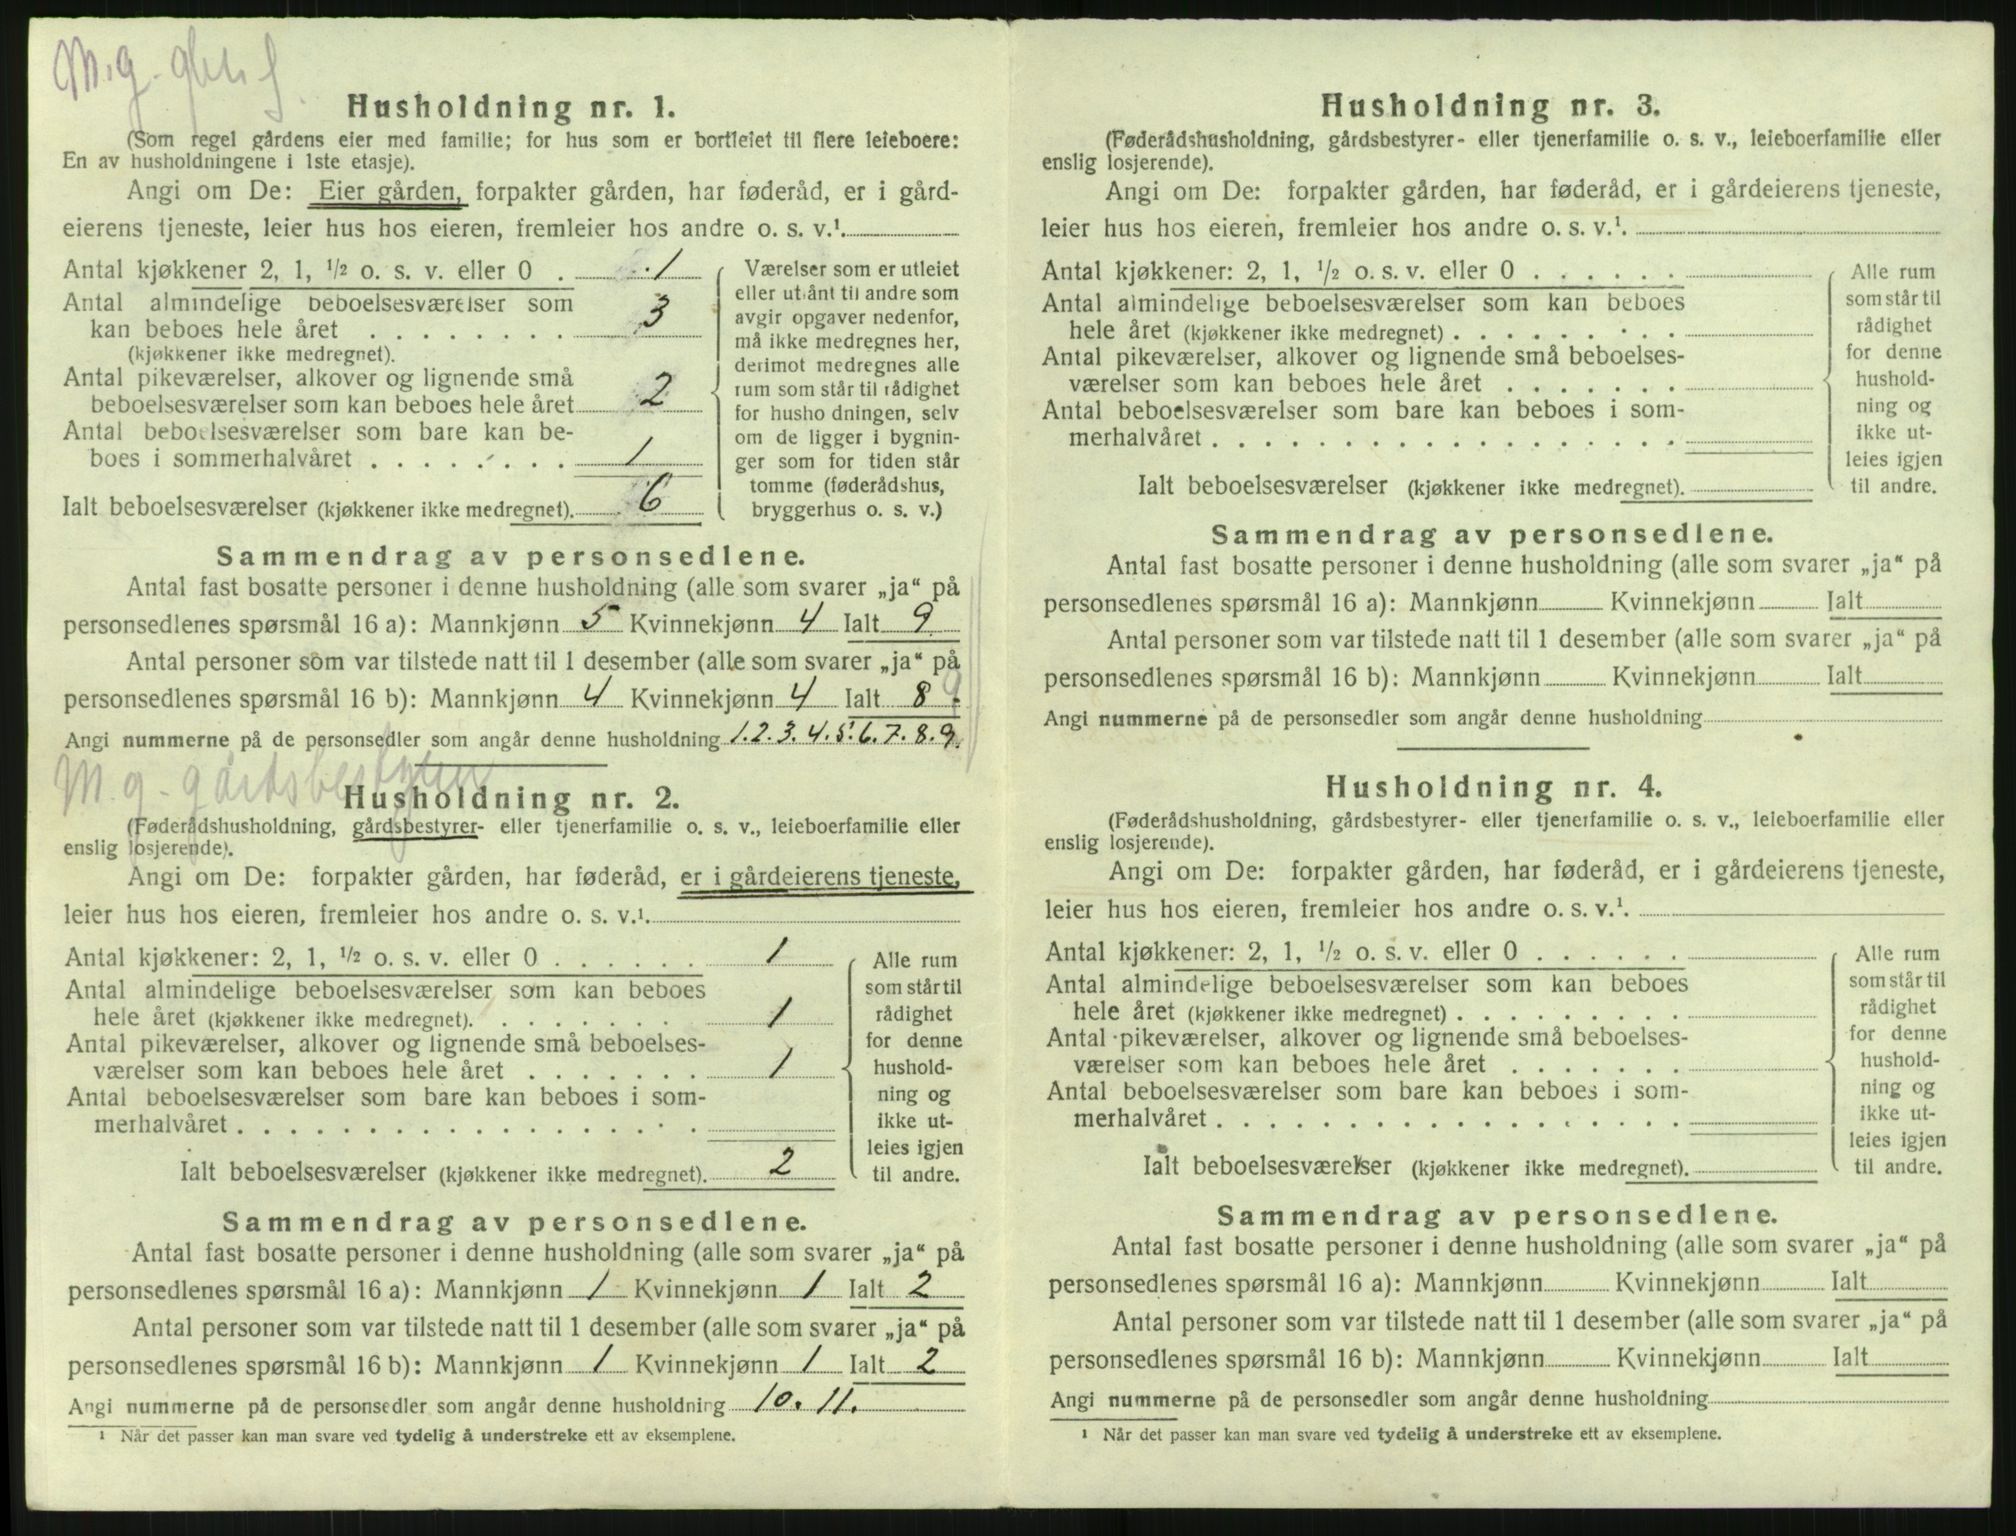 M.g.
Husholdning nr. 1.
(Som regel gårdens eier med familie; for hus som er bortleiet til flere leieboere:
En av husholdningene i 1ste etasje).
Angi om De: Eier gården, forpakter gården, har føderåd, er i gård-
eierens tjeneste, leier hus hos eieren, fremleier hos andre o. s. v.¹
Antal kjøkkener 2, 1, ½ o. s. v. eller 0 . 1
Antal almindelige beboelsesværelser som
kan beboes hele året . . . . . . . . 3
(kjøkkener ikke medregnet).
Antal pikeværelser, alkover og lignende små
beboelsesværelser som kan beboes hele året 2
Antal beboelsesværelser som bare kan be-
boes i sommerhalvåret . . . . . . . 1
Ialt beboelsesværelser (kjøkkener ikke medregnet). 6
Værelser som er utleiet
eller utlånt til andre som
avgir opgaver nedenfor,
må ikke medregnes her,
derimot medregnes alle
rum som står til rådighet
for husholdningen, selv
om de ligger i bygnin-
ger som for tiden står
tomme (føderådshus,
bryggerhus o. s. v.)
Sammendrag av personsedlene.
Antal fast bosatte personer i denne husholdning (alle som svarer „ja“ på
personsedlenes spørsmål 16 a): Mannkjønn 5 Kvinnekjønn 4 Ialt 9
Antal personer som var tilstede natt til 1 desember (alle som svarer „ja“ på
personsedlenes spørsmål 16 b): Mannkjønn 4 Kvinnekjønn 4 Ialt 8 9
Angi nummerne på de personsedler som angår denne husholdning 1.2.3.4.5.6.7.8.9.
M.g. gårdsbestyrer
Husholdning nr. 2.
(Føderådshusholdning, gårdsbestyrer- eller tjenerfamilie o. s. v., leieboerfamilie eller
enslig losjerende).
Angi om De: forpakter gården, har føderåd, er i gårdeierens tjeneste,
leier hus hos eieren, fremleier hos andre o. s. v.¹
Antal kjøkkener: 2, 1, ½ o. s. v. eller 0 . . . . . . 1
Antal almindelige beboelsesværelser som kan beboes
hele året (kjøkkener ikke medregnet). . . . . . . . 1
Antal pikeværelser, alkover og lignende små beboelses-
værelser som kan beboes hele året . . . . . . . 1
Antal beboelsesværelser som bare kan beboes i som-
merhalvåret . . . . . . . . . . . . . . . . . .
Ialt beboelsesværelser (kjøkkener ikke medregnet). 2
Alle rum
som står til
rådighet
for denne
hushold-
ning og
ikke ut-
leies igjen
til andre.
Sammendrag av personsedlene.
Antal fast bosatte personer i denne husholdning (alle som svarer „ja“ på
personsedlenes spørsmål 16 a): Mannkjønn 1 Kvinnekjønn 1 Ialt 2
Antal personer som var tilstede natt til 1 desember (alle som svarer „ja“ på
personsedlenes spørsmål 16 b): Mannkjønn 1 Kvinnekjønn 1 Ialt 2
Angi nummerne på de personsedler som angår denne husholdning 10. 11.
¹ Når det passer kan man svare ved tydelig å understreke ett av eksemplene.
Husholdning nr. 3.
(Føderådshusholdning, gårdsbestyrer- eller tjenerfamilie o. s. v., leieboerfamilie eller
enslig losjerende).
Angi om De: forpakter gården, har føderåd, er i gårdeierens tjeneste,
leier hus hos eieren, fremleier hos andre o. s. v.¹.
Antal kjøkkener: 2, 1, ½ o. s. v. eller 0 . . . . . .
Antal almindelige beboelsesværelser som kan beboes
hele året (kjøkkener ikke medregnet) . . . . . . . . .
Antal pikeværelser, alkover og lignende små beboelses-
værelser som kan beboes hele året . . . . . . .
Antal beboelsesværelser som bare kan beboes i som-
merhalvåret . . . . . . . . . . . . . . . . . .
Ialt beboelsesværelser (kjøkkener ikke medregnet).
Alle rum
som står til
rådighet
for denne
hushold-
ning og
ikke ut-
leies igjen
til andre.
Sammendrag av personsedlene.
Antal fast bosatte personer i denne husholdning (alle som svarer „ja“ på
personsedlenes spørsmål 16 a): Mannkjønn Kvinnekjønn Ialt
Antal personer som var tilstede natt til 1 desember (alle som svarer „ja“ på
personsedlenes spørsmål 16 b): Mannkjønn Kvinnekjønn Ialt
Angi nummerne på de personsedler som angår denne husholdning
Husholdning nr. 4.
(Føderådshusholdning, gårdsbestyrer- eller tjenerfamilie o. s. v., leieboerfamilie eller
enslig losjerende).
Angi om De: forpakter gården, har føderåd, er i gårdeierens tjeneste,
leier hus hos eieren, fremleier hos andre o. s. v.¹.
Antal kjøkkener: 2, 1, ½ o. s. v. eller 0 . . . . . .
Antal almindelige beboelsesværelser som kan beboes
hele året (kjøkkener ikke medregnet) . . . . . . . . .
Antal pikeværelser, alkover og lignende små beboelses-
værelser som kan beboes hele året . . . . . . .
Antal beboelsesværelser som bare kan beboes i som-
merhalvåret . . . . . . . . . . . . . . . . . .
Ialt beboelsesværelser (kjøkkener ikke medregnet).
Alle rum
som står til
rådighet
for denne
hushold-
ning og
ikke ut-
leies igjen
til andre.
Sammendrag av personsedlene.
Antal fast bosatte personer i denne husholdning (alle som svarer „ja“ på
personsedlenes spørsmål 16 a): Mannkjønn Kvinnekjønn Ialt
Antal personer som var tilstede natt til 1 desember (alle som svarer „ja“ på
personsedlenes spørsmål 16 b): Mannkjønn Kvinnekjønn Ialt
Angi nummerne på de personsedler som angår denne husholdning
¹ Når det passer kan man svare ved tydelig å understreke ett av eksemplene.